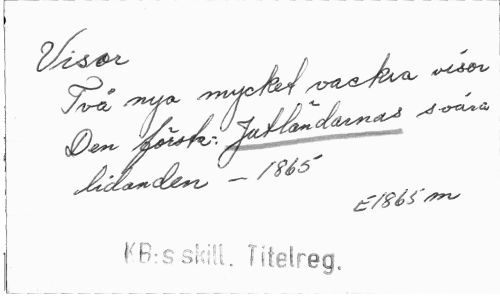 Visor
Två nya mycket vackra visor
Den första: Jutländarnas svåra
lidanden - 1865
E1865 m
KB:s skill. Titelreg.